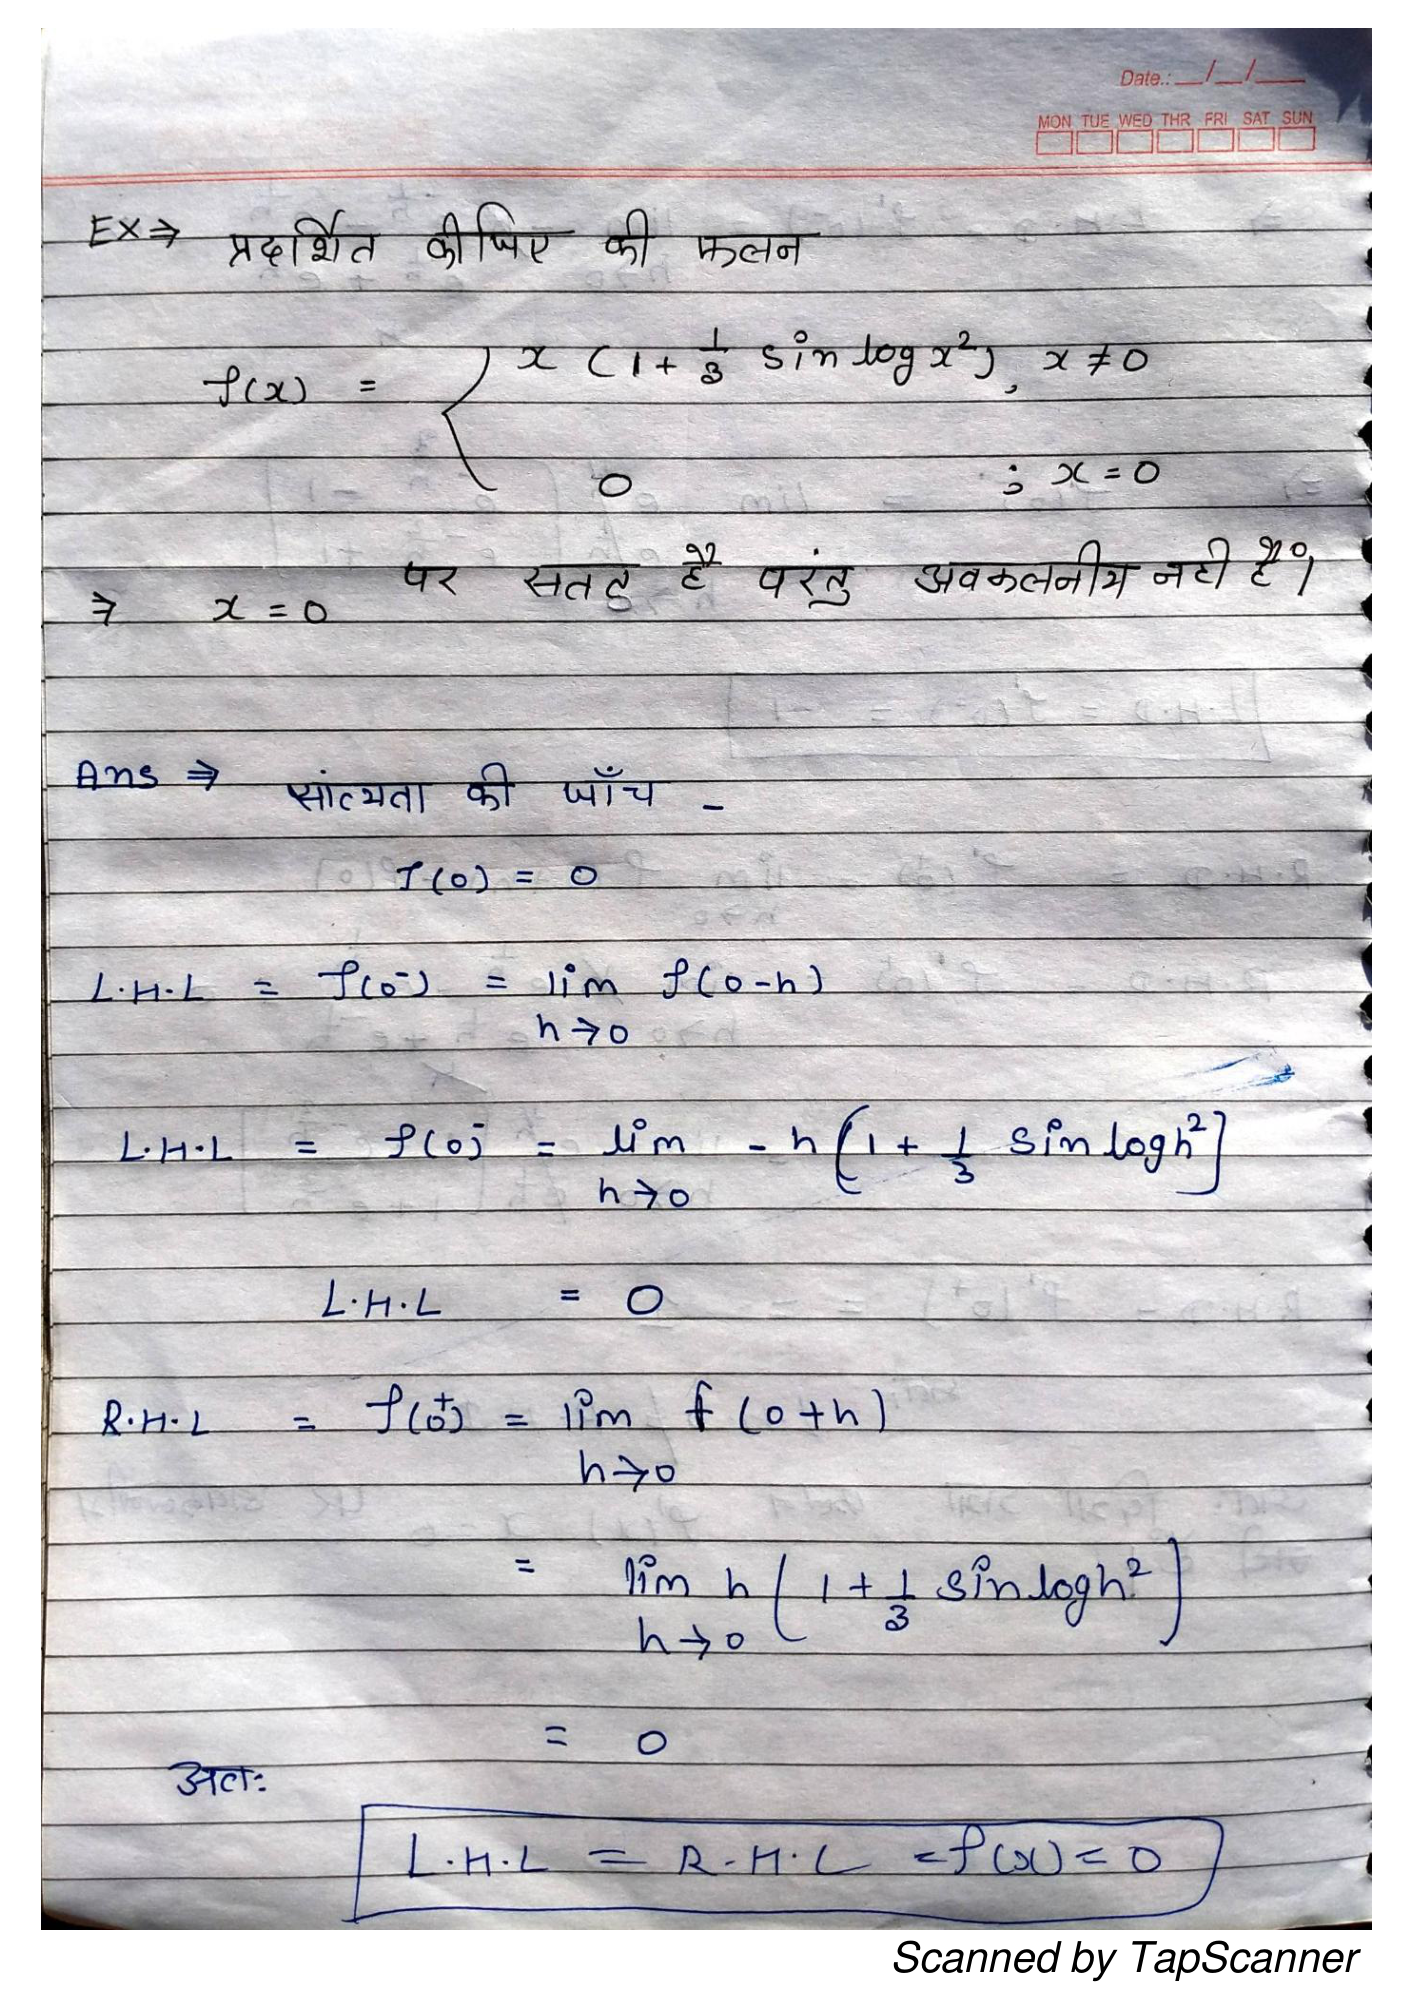 Date.: __/__/__
MON TUE WED THR FRI SAT SUN
EX⇒ प्रदर्शित कीजिए की फलन
f(x) = { x (1 + 1/3 sin log x²), x ≠ 0
0 ; x = 0
⇒ x = 0 पर सतत् है परंतु अवकलनीय नही है।
Ans ⇒ सांत्यता की जाँच -
f(0) = 0
L.H.L = f(0⁻) = lim f(0-h)
h→0
L.H.L = f(0⁻ = lim - h [1 + 1/3 sin log h²]
h→0
L.H.L = 0
R.H.L = f(0⁺) = lim f (0+h)
h→0
= lim h [1 + 1/3 sin log h²]
h→0
= 0
अतः
L.H.L = R.H.L = f(x) = 0
Scanned by TapScanner